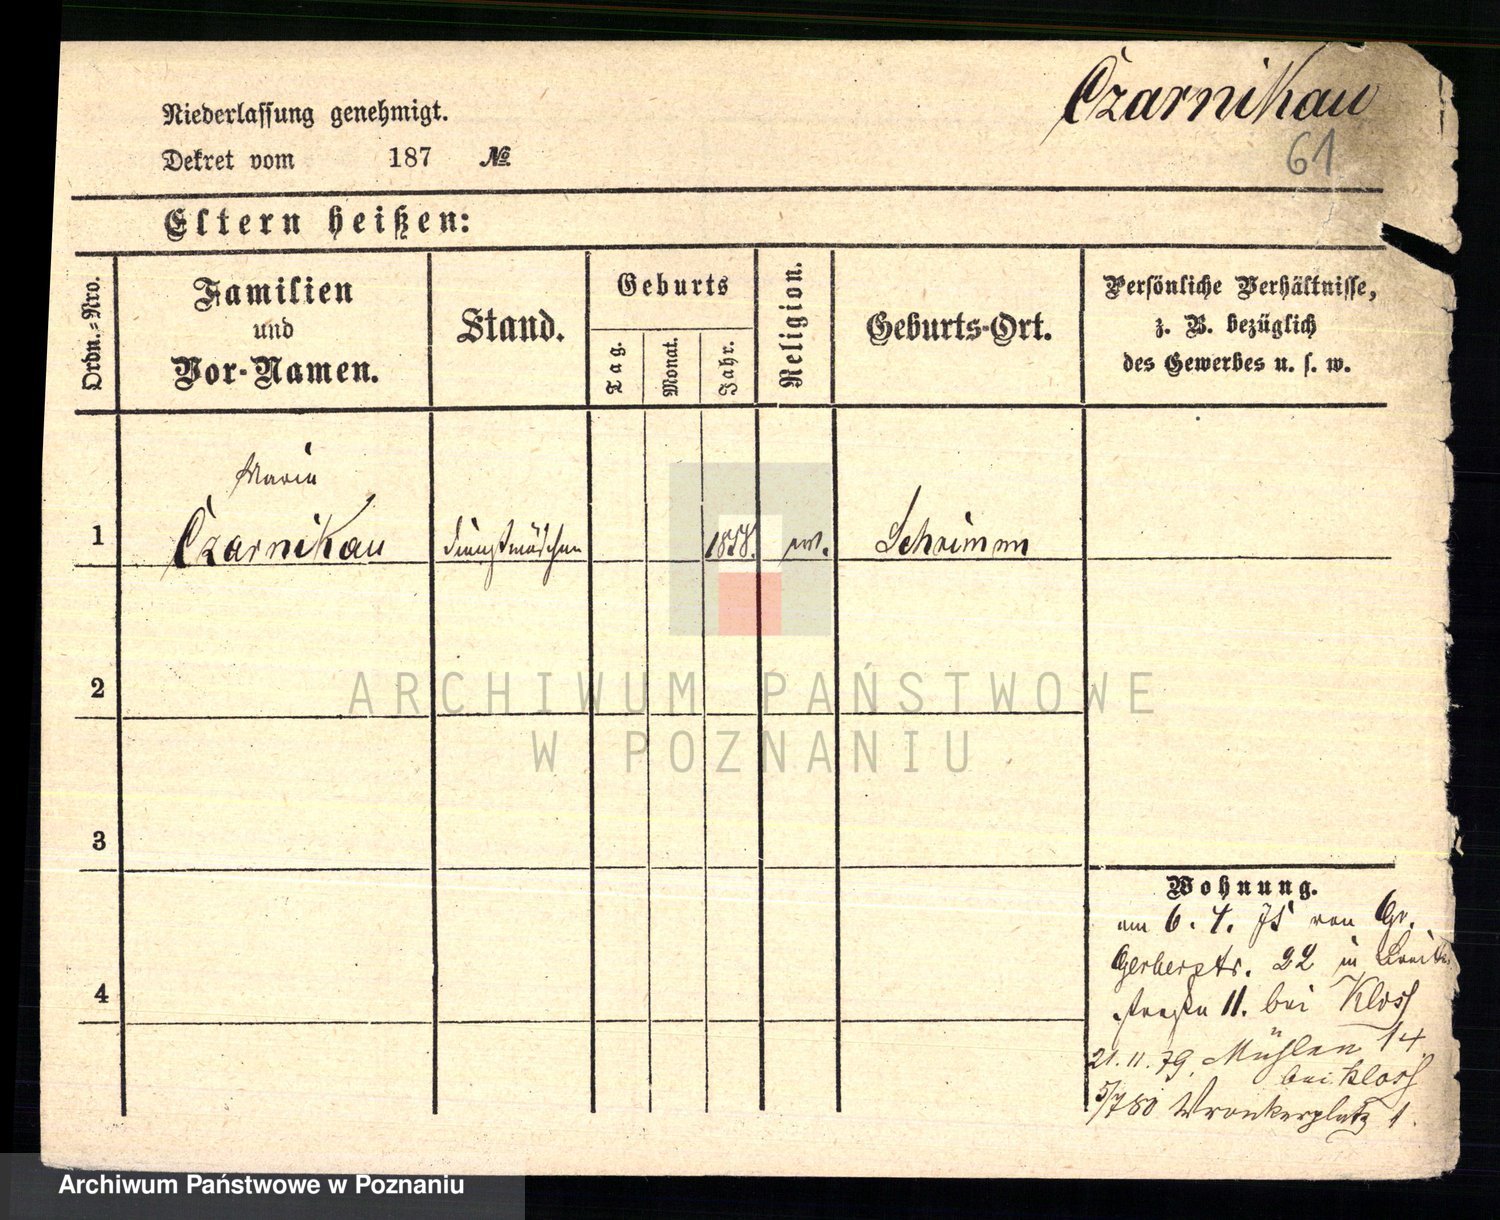 Czarnikau
Niederlassung genehmigt.
Dekret vom 187 №
61
Eltern heißen:
Ordn.-Nro.
Familien
und
Vor-Namen.
Stand.
Geburts
Tag.
Monat.
Jahr.
Religion.
Geburts-Ort.
Persönliche Verhältnisse,
z. B. bezüglich
des Gewerbes u. s. w.
Marie
1 Czarnikau Dienstmädchen 1858. Schrimm
2
3
4
Wohnung.
am 6. 4. von Gr.
Gerberstr. 22 in Breite
straße 11. bei Kloss
21.11.79. Mühlen 14
bei Kloss
5/7 80 Wronkerplatz 1.
ARCHIWUM PAŃSTWOWE
W POZNANIU
Archiwum Państwowe w Poznaniu